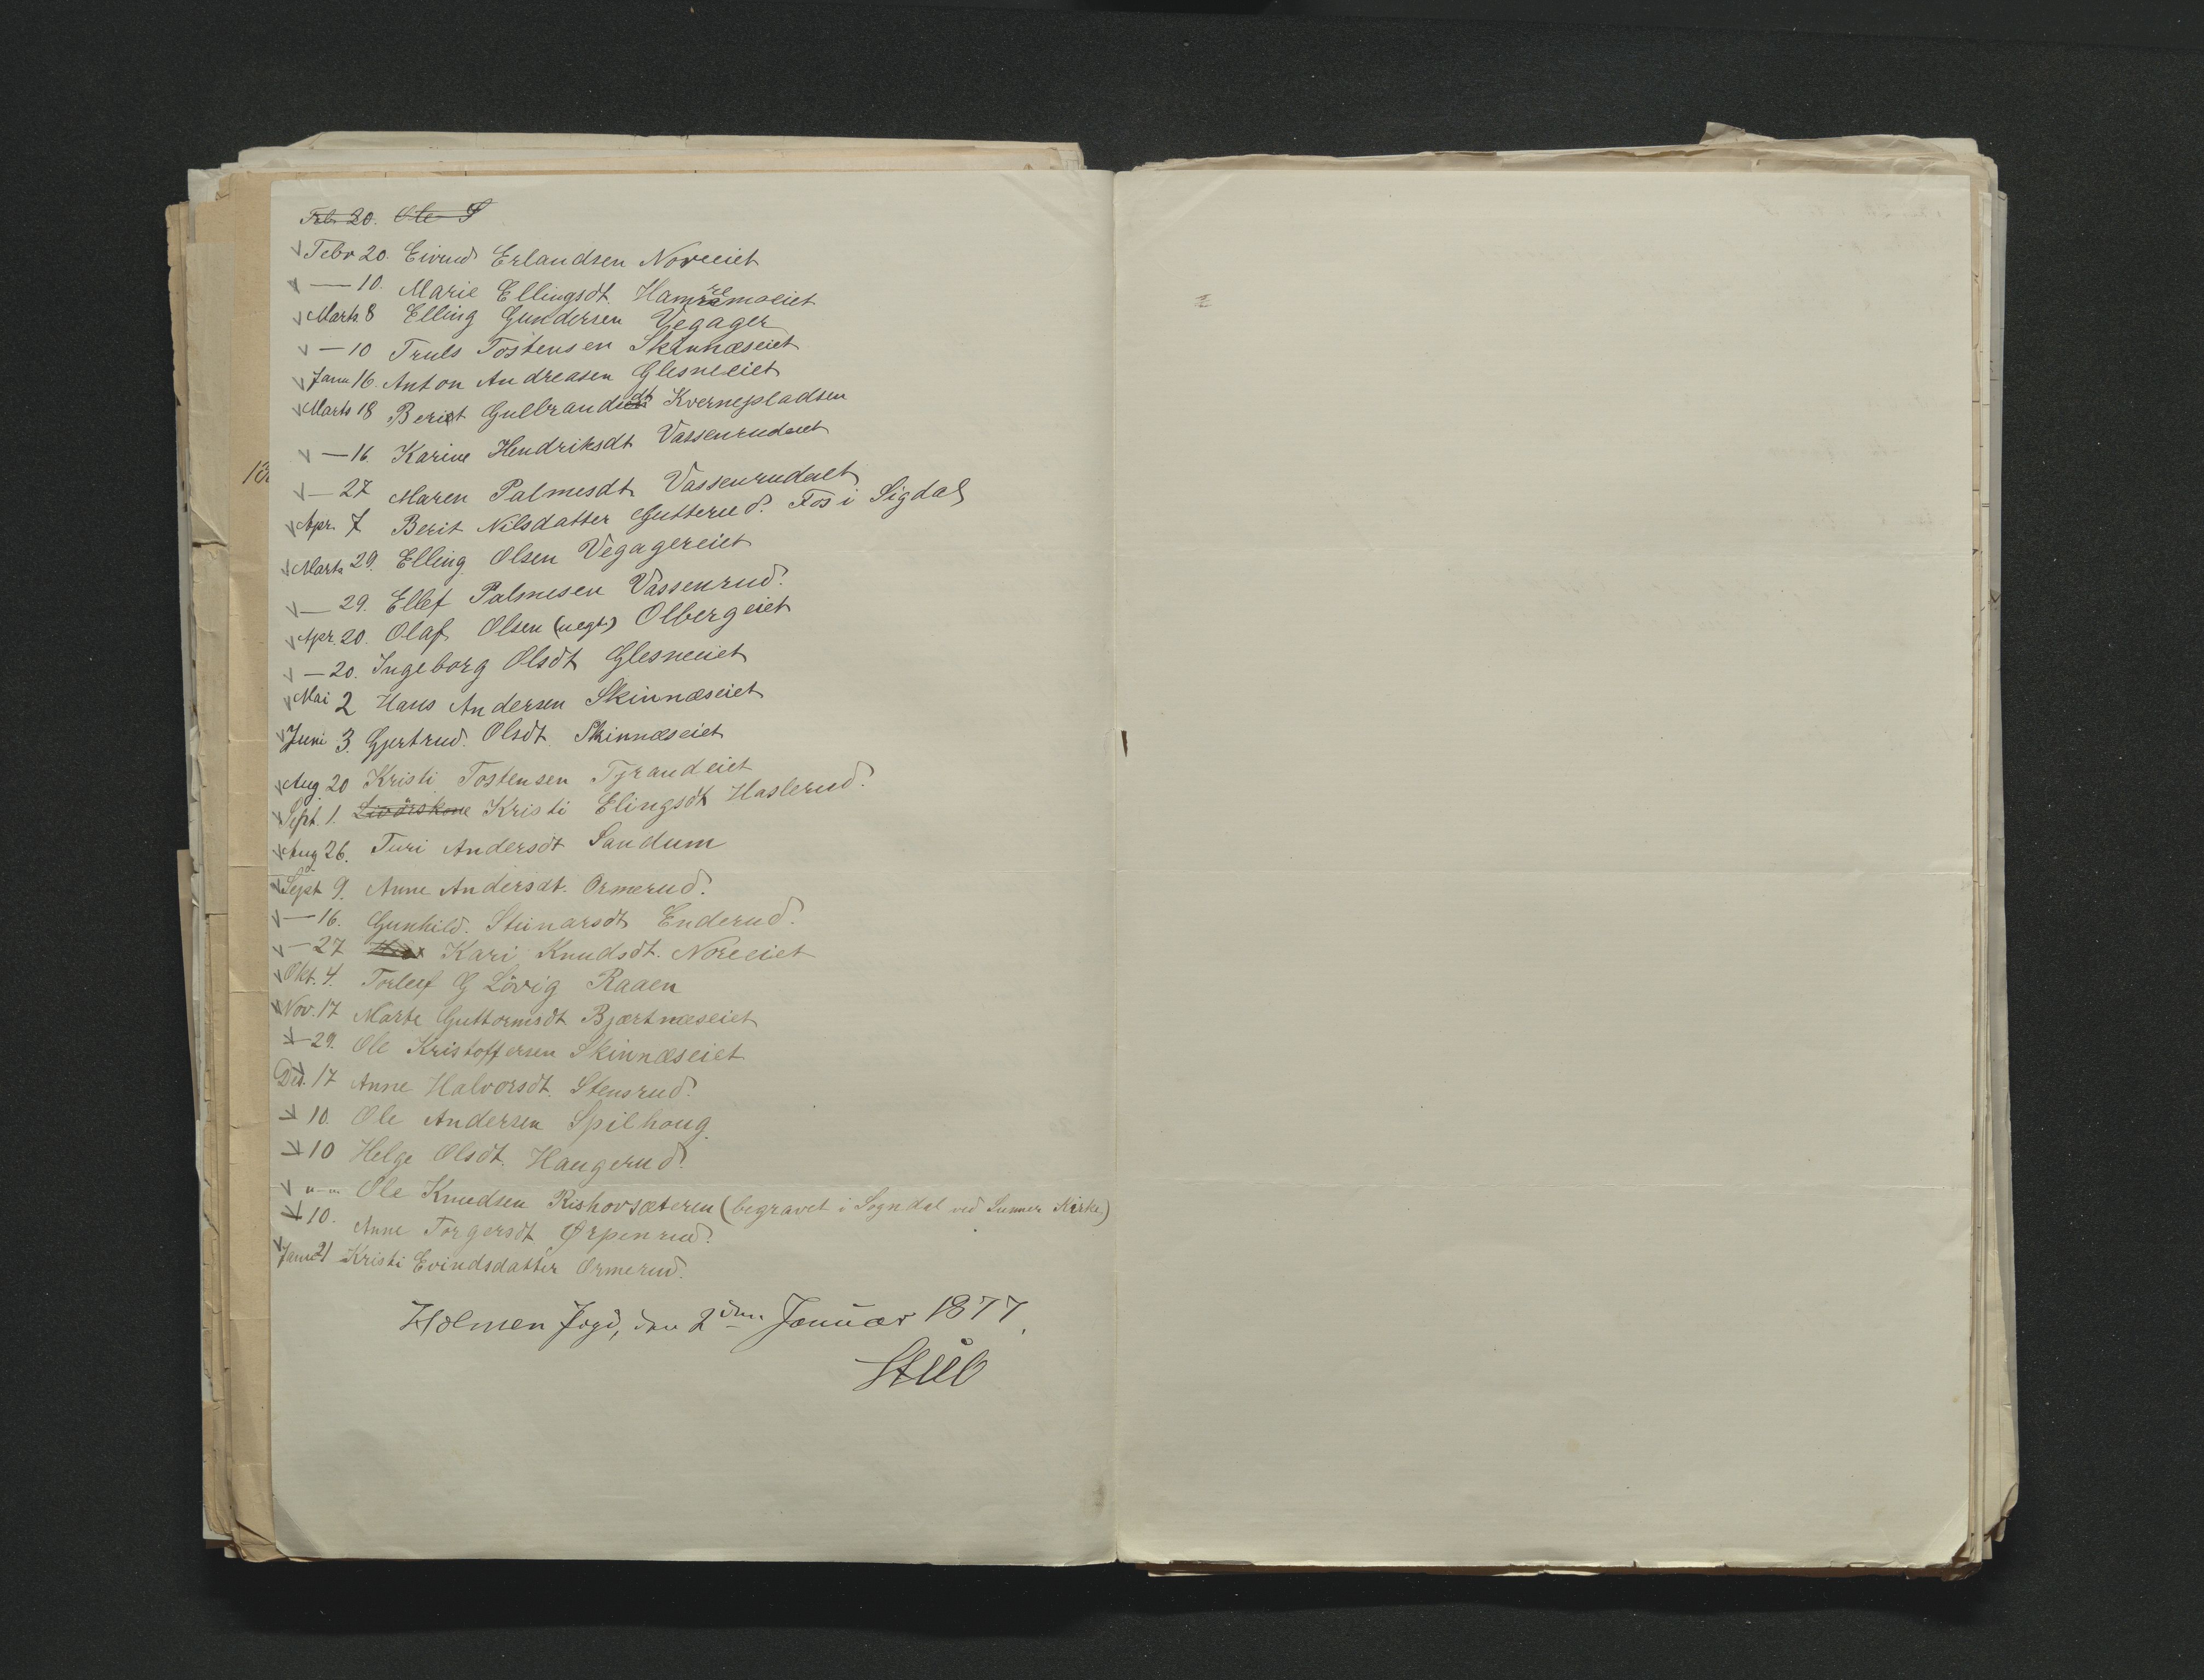 Feb. 20. Ole S
Febr 20. Eivind Erlandsen Noreeiet
— 10. Marie Ellingsdt. Hamremoeiet
Marts 8 Elling Gundersen Vegager
— 10 Truls Tostensen Skinnæseiet
Janu 16. Anton Andreasen Glesneeiet
Marts 18 Berit Gulbrandsdt Kvernepladsen
— 16. Karine Hendriksdt Vassenrudeiet
— 27 Maren Palmesdt Vassenrudeiet
Apr. 7 Berit Nilsdatter Gutterud. Fos i Sigdal
Marts 29. Elling Olsen Vegagereiet
— 29. Ellef Palmesen Vassenrud.
Apr. 20. Olaf Olsen (uegt.) Olbergeiet
— 20. Ingeborg Olsdt Glesneeiet
Mai 2 Hans Andersen Skinnæseiet
Juni 3. Gjertrud. Olsdt. Skinnæseiet
Aug. 20 Kristi Tostensen Tyrandeiet
Sept. 1. Kristi Elingsdt Haslerud.
Aug 26. Turi Andersdt Sandum
Sept 9. Anne Andersdt. Ormerud.
— 16. Gunhild. Steinarsdt Enderud.
— 27 Kari Knudsdt. Noreeiet
Okt. 4. Torleif G Lövig Raaen
Nov. 17 Marte Guttormsdt Bjertnæseiet
— 29. Ole Kristoffersen Skinnæseiet
Des. 17 Anne Halvorsdt. Stensrud.
— 10. Ole Andersen Spilhoug
— 10 Helge Olsdt. Haugerud.
" — " Ole Knudsen Rishovsæteren (begravet i Sogndal ved Lunner Kirke.)
— 10. Anne Torgersdt Ørpenrud.
Janu 21 Kristi Evindsdatter Ormerud.
Holmen Sogd, den 2den Januar 1877.
Stub